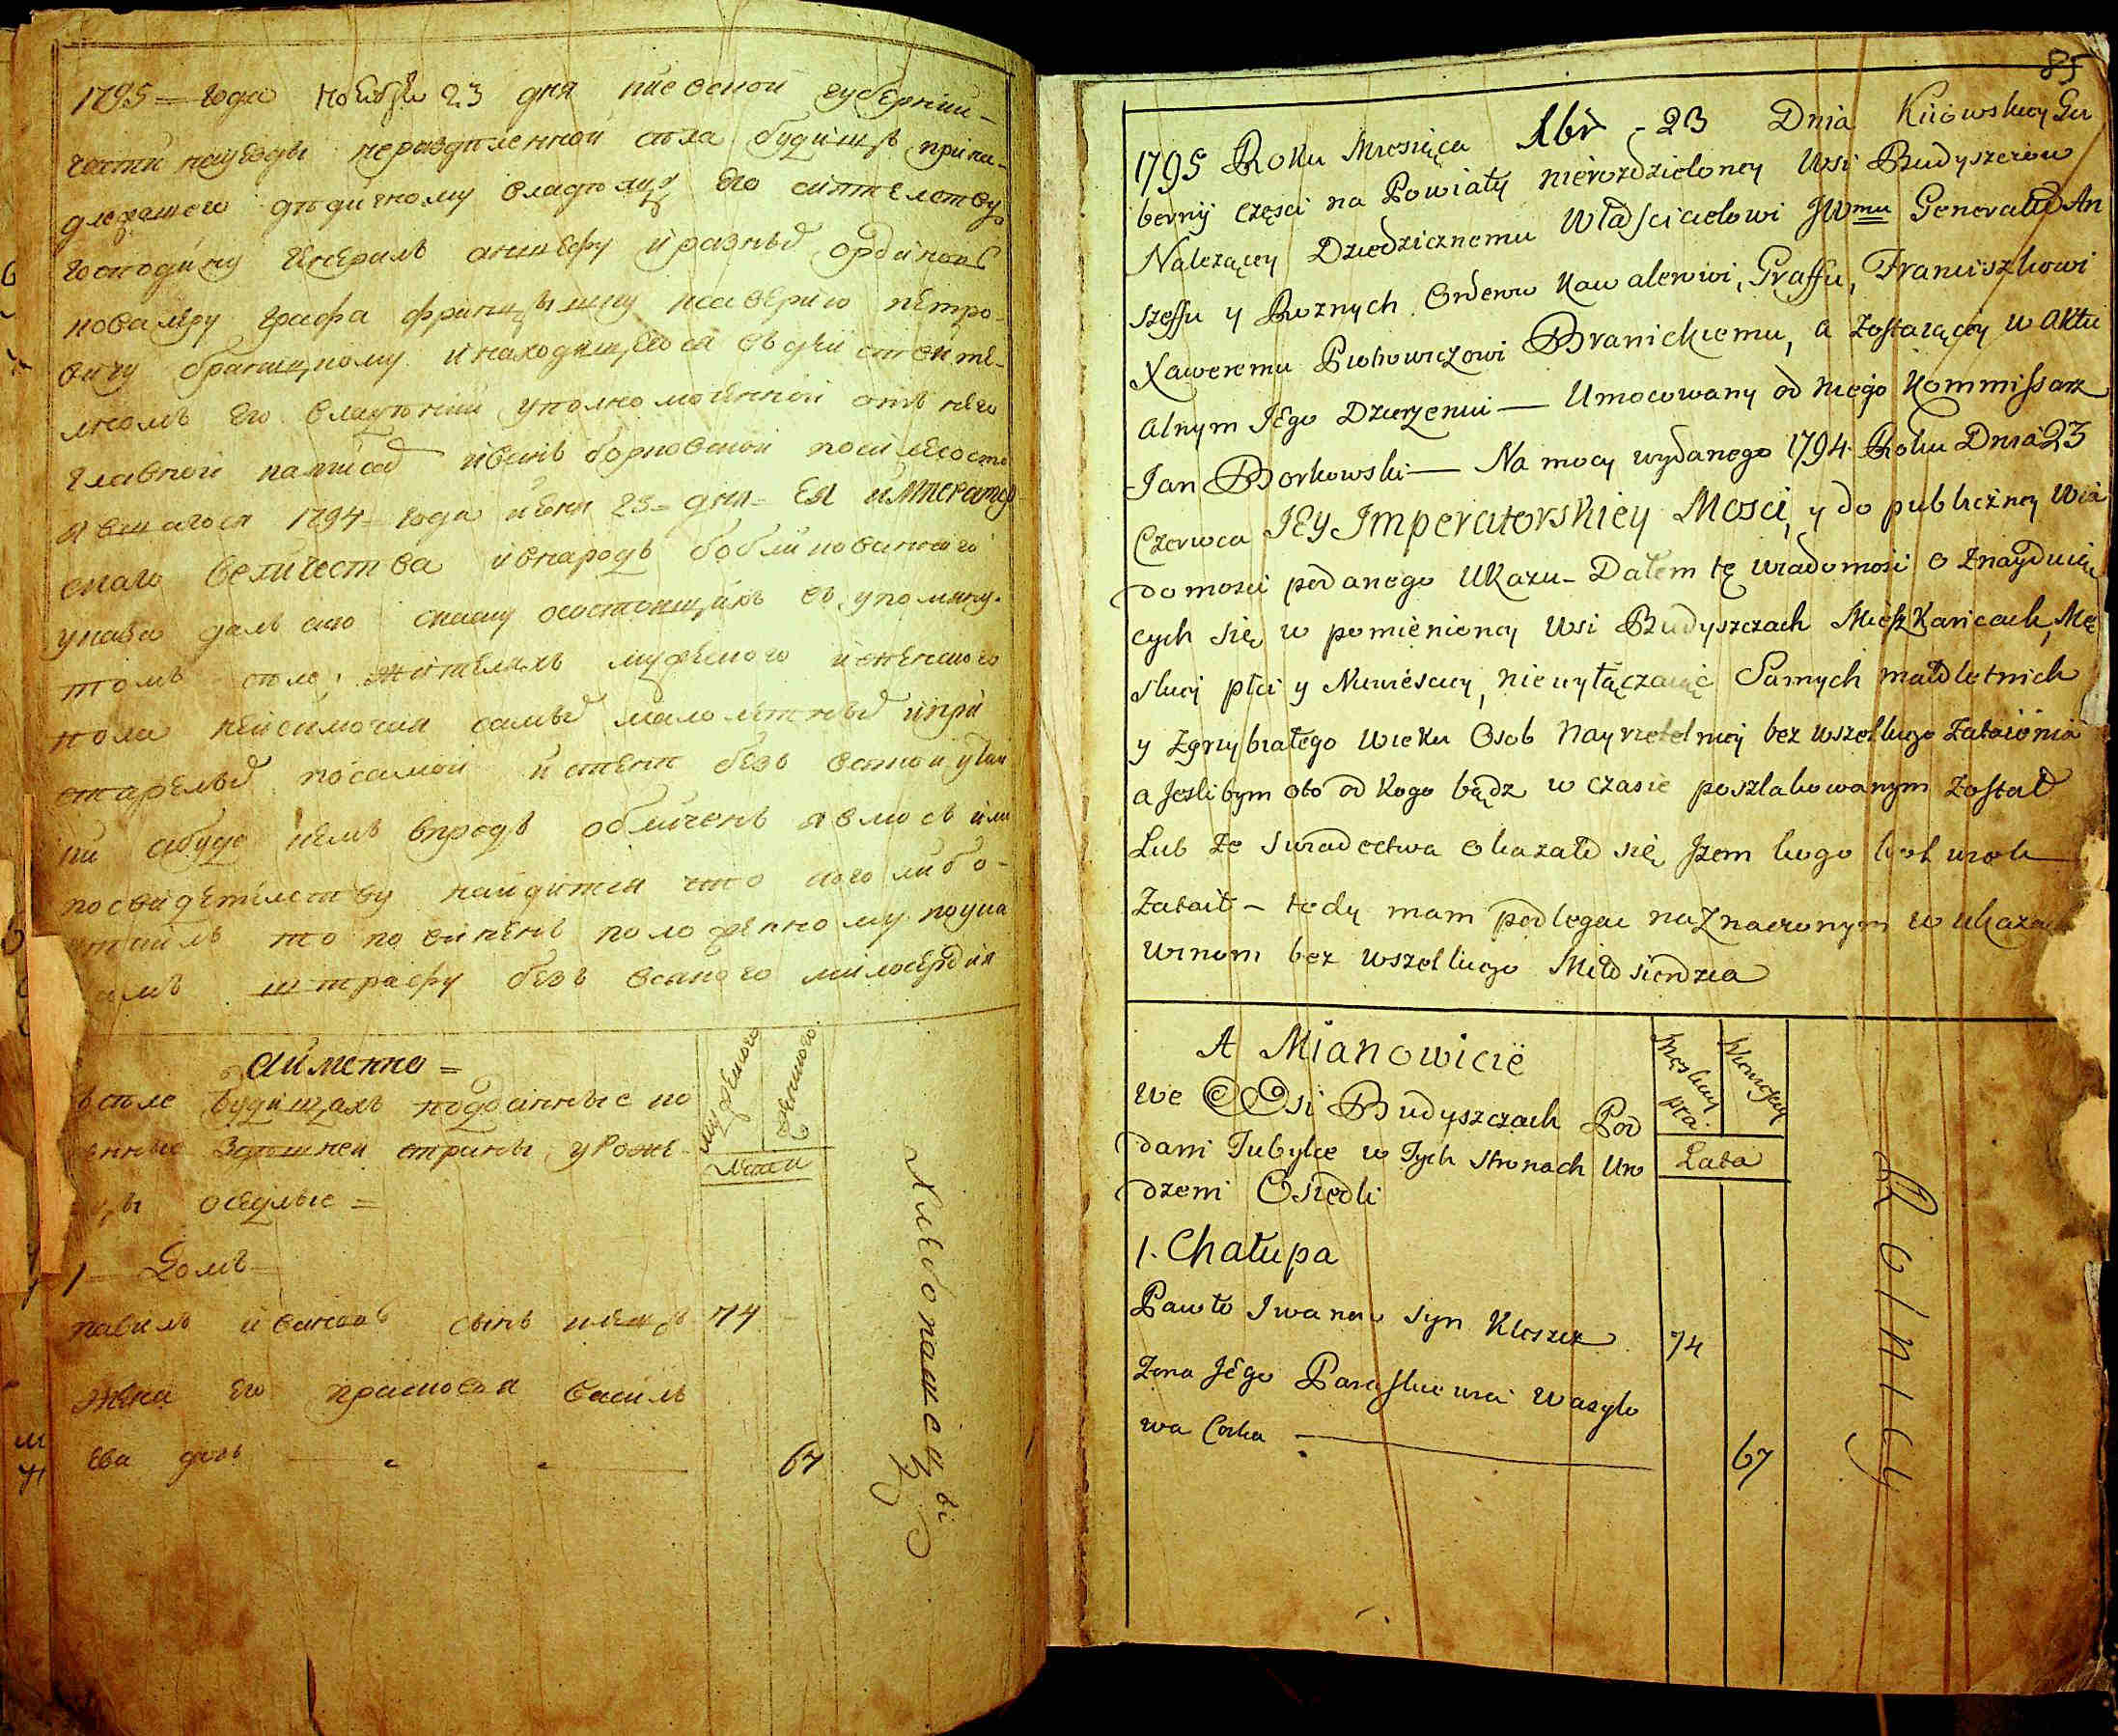 1795 = года ноября 23 дня киевской губернии
части на уезды неразделенной села будищъ прина-
длежащого дедичному владелцу Его сиятелству
господину Генералъ аншефу и разныхъ ординовъ
ковалеру графа францышку ксаверию петро-
вичу браницкому и находящегося в действите-
лномъ Его владении уполномоченной отъ него
главной иванъ борковской по силе состо
явшагося 1794 = года июня 23 = дня = Ея император
скаго величества и в народъ бобликованного
указа далъ сию скаску о состоящихъ въ упомяну-
томъ селе, жителяхъ мужеского и женского
пола не исключая самыхъ малолетныхъ и при
старелыхъ по самой истенне безъ всякой утай
ки а буде кемъ впредъ обличенъ явлюсь или
по свидетелству найдится что кого либо-
утаилъ то повиненъ положенному по ука
замъ штрафу безъ всякого милосердия
аименно =
в селе Будищахъ подданные ко
ренные здешней страны уроже-
нцы оседлые =
мужеского
женского
лета
1 = Домъ =
павилъ ивановъ сынъ 74
жена Его прасковья василь
ева дочь 67
Хлебопашцы
85
1795 Roku Miesiąca Xbr - 23 Dnia Kiiowskiey Gu
bernij części na Powiaty nierozdzieloney Wsi Budyszczow
Nalezącey Dziedzicznemu Właścicielowi JWmu Generałow An
szeffu y Roznych Orderow Kawalerowi, Graffu, Franciszkowi
Xaweremu Piotrowiczowi Branickiemu, a zostaiącey w aktu
alnym JEgo Dzierzeniu — Umocowany od niego Kommissarz
Jan Borkowski — Na mocy wydanego 1794. Roku Dnia 23
Czerwca JEy Jmperatorskiey Mosci, y do publiczney wia
domosci podanego Ukazu - Dałem tę wiadomość o znayduią
cych się w pomienioney Wsi Budyszczach Mieszkańcach, Mę
skiey płci y Niewieściey, niewyłączaiąc Samych małoletnich
y zgrzybiałego wieku Osob nayrzetelniey bez wszelkiego zataienia
a Jeslibym oto od kogo bądz w czasie poszlakowanym został
Lub ze swiadectwa okazało się Jżem kogo kolwiek
zataił - tedy mam podlegac naznaczonym w ukazach
winom bez wszelkiego Miłosierdzia
A Mianowicie
we Wsi Budyszczach Pod
dani Tubylce w Tych stronach Uro
dzeni Osiedli
Męskiey płci.
Niewieściey
Lata
1. Chałupa
Pawło Jwanow syn 74
Zona JEgo Paraskiewia Wasylo
wa Corka 67
Rolnicy